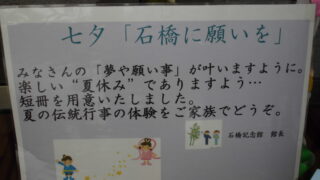 七夕「石橋に願いを」
みなさんの「夢や願い事」が叶いますように。
楽しい“夏休み”でありますよう…
短冊を用意いたしました。
夏の伝統行事の体験をご家族でどうぞ。
石橋記念館　館長